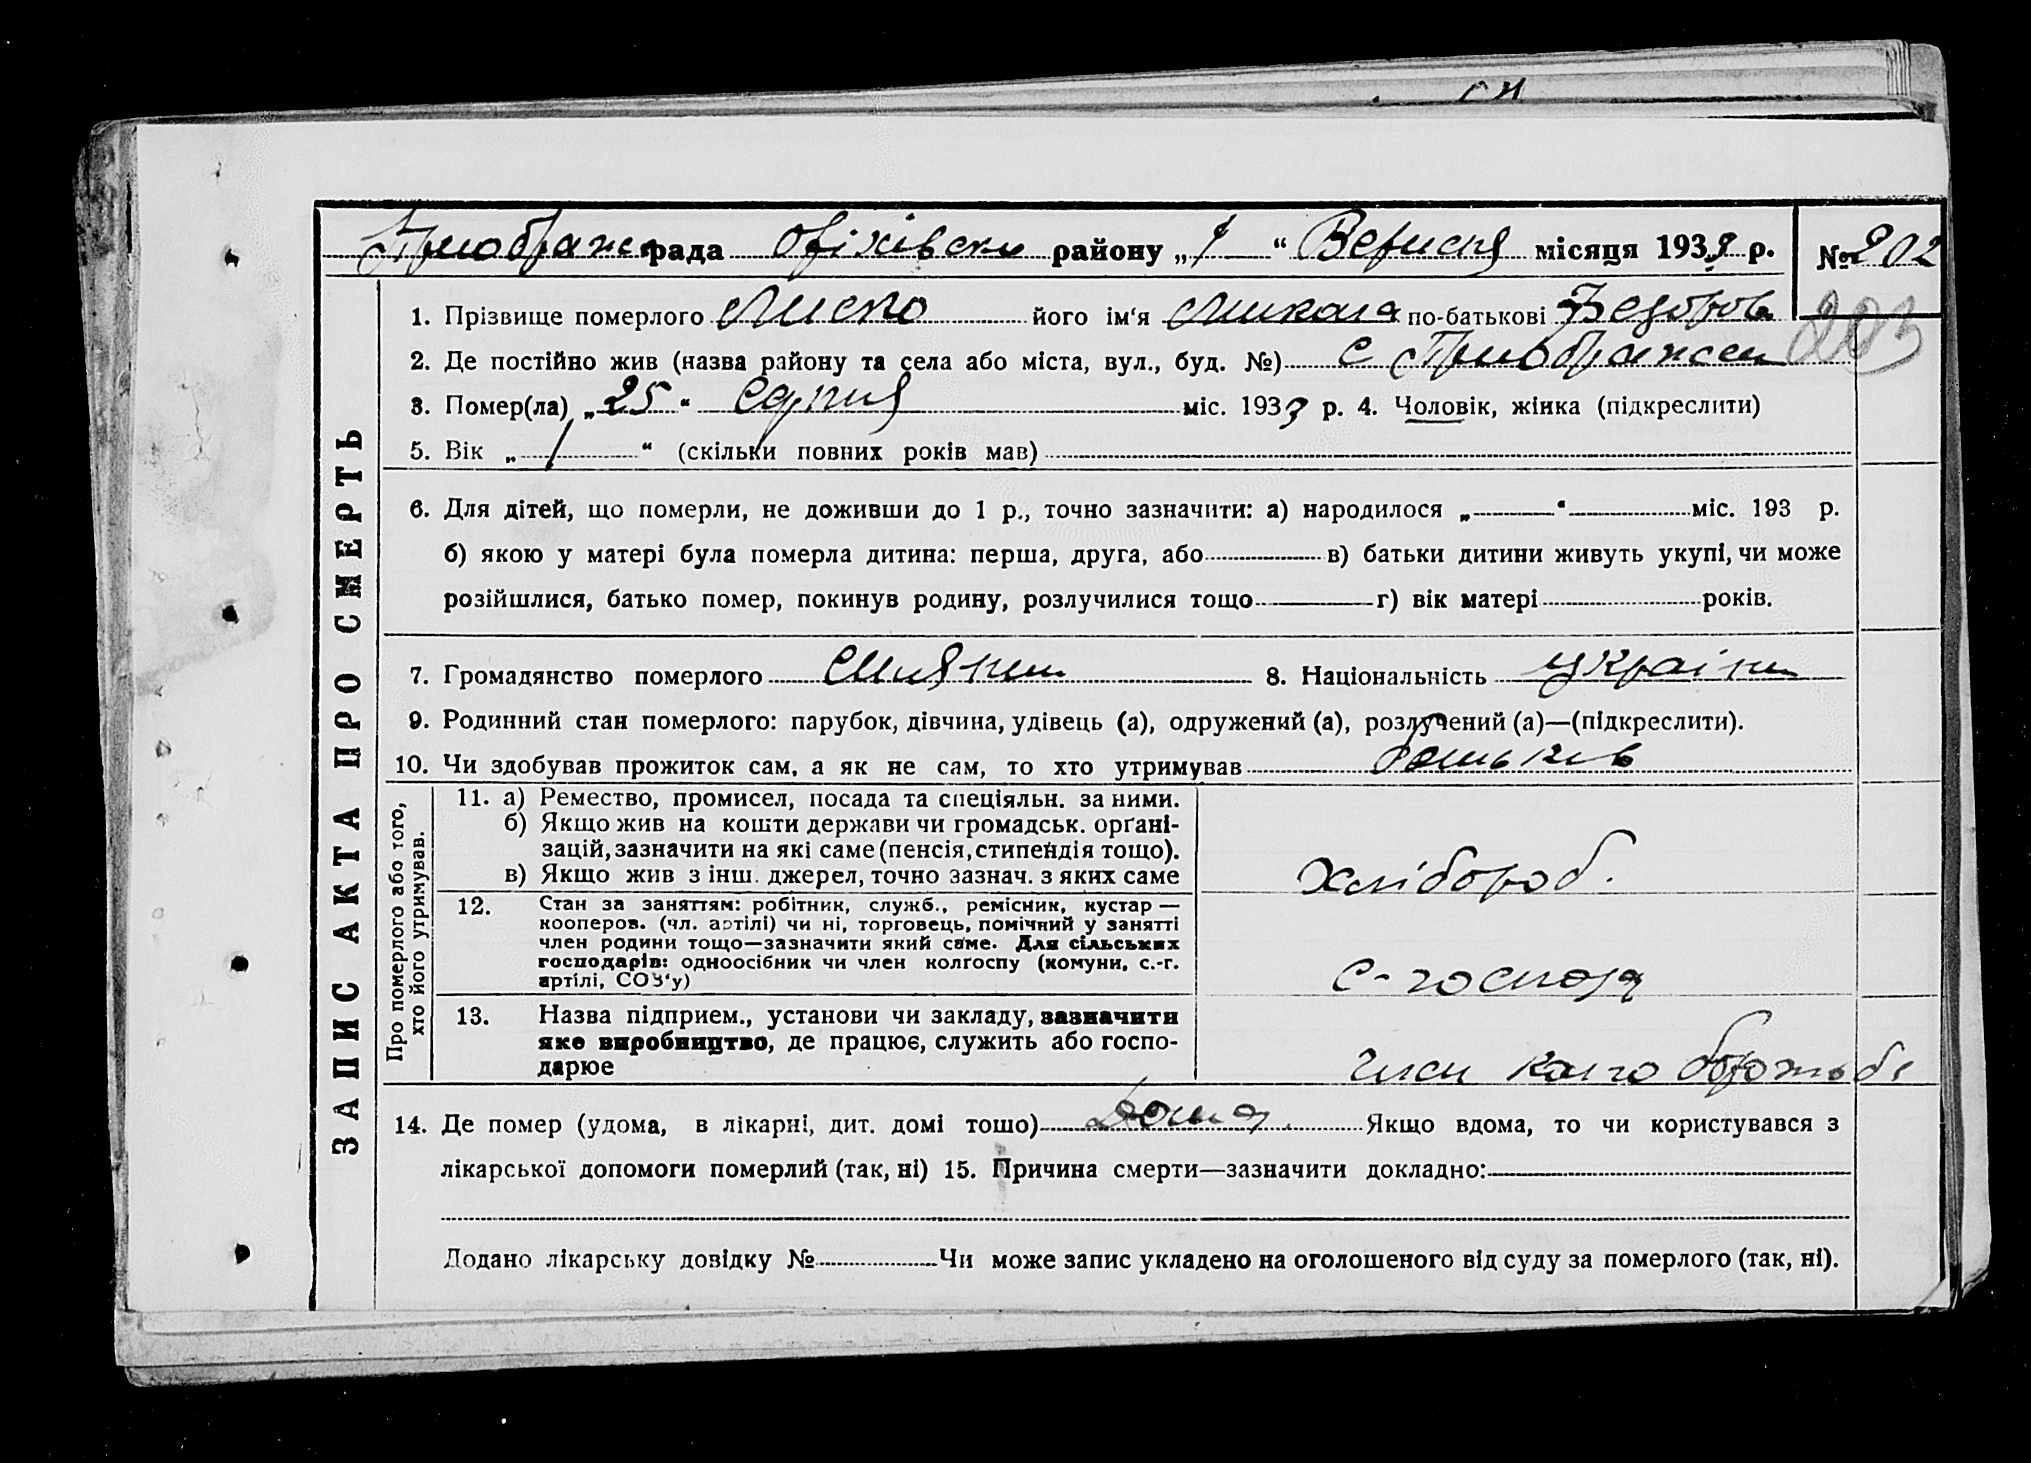 Преображен рада Оріхівськ району „1“ Вересня місяця 1933 р. № 202
1. Прізвище померлого його ім‘я Микола по-батькові Федоров
203
2. Де постійно жив (назва району та села або міста, вул., буд. №) с Преображен
3. Помер(ла) „25“ Серпня міс. 1933 р. 4. Чоловік, жінка (підкреслити)
5. Вік „1“ (скільки повних років мав)
6. Для дітей, що померли, не доживши до 1 р., точно зазначити: а) народилося „ “ міс. 193 р.
б) якою у матері була померла дитина: перша, друга, або в) батьки дитини живуть укупі, чи може
розійшлися, батько помер, покинув родину, розлучилися тощо г) вік матері років.
7. Громадянство померлого 8. Національність україн
9. Родинний стан померлого: парубок, дівчина, удівець (а), одружений (а), розлучений (а)—(підкреслити).
10. Чи здобував прожиток сам, а як не сам, то хто утримував батьків
ЗАПИС АКТА ПРО СМЕРТЬ
Про померлого або того,
хто його утримував.
11. а) Ремество, промисел, посада та спеціяльн. за ними.
б) Якщо жив на кошти держави чи громадськ. орґані-
зацій, зазначити на які саме (пенсія, стипендія тощо).
в) Якщо жив з інш. джерел, точно зазнач. з яких саме
Хлібороб.
12. Стан за заняттям: робітник, служб., ремісник, кустар —
кооперов. (чл. артілі) чи ні, торговець, помічний у занятті
член родини тощо—зазначити який саме. Для сільських
господарів: одноосібник чи член колгоспу (комуни, с.-г.
артілі, СОЗ‘у)
с-господ
13. Назва підприєм., установи чи закладу, зазначити
яке виробництво, де працює, служить або госпо-
дарює
член
14. Де помер (удома, в лікарні, дит. домі тощо) Дома. Якщо вдома, то чи користувався з
лікарської допомоги померлий (так, ні) 15. Причина смерти—зазначити докладно:
Додано лікарську довідку № Чи може запис укладено на оголошеного від суду за померлого (так, ні).